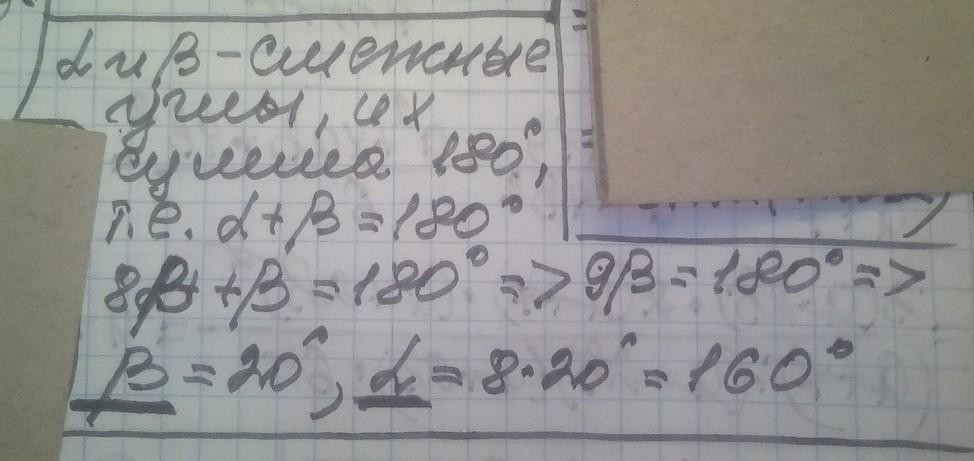 α и β - смежные
углы, их
сумма 180°,
т.е. α + β = 180°
8β + β = 180° => 9β = 180° =>
β = 20°, α = 8·20° = 160°